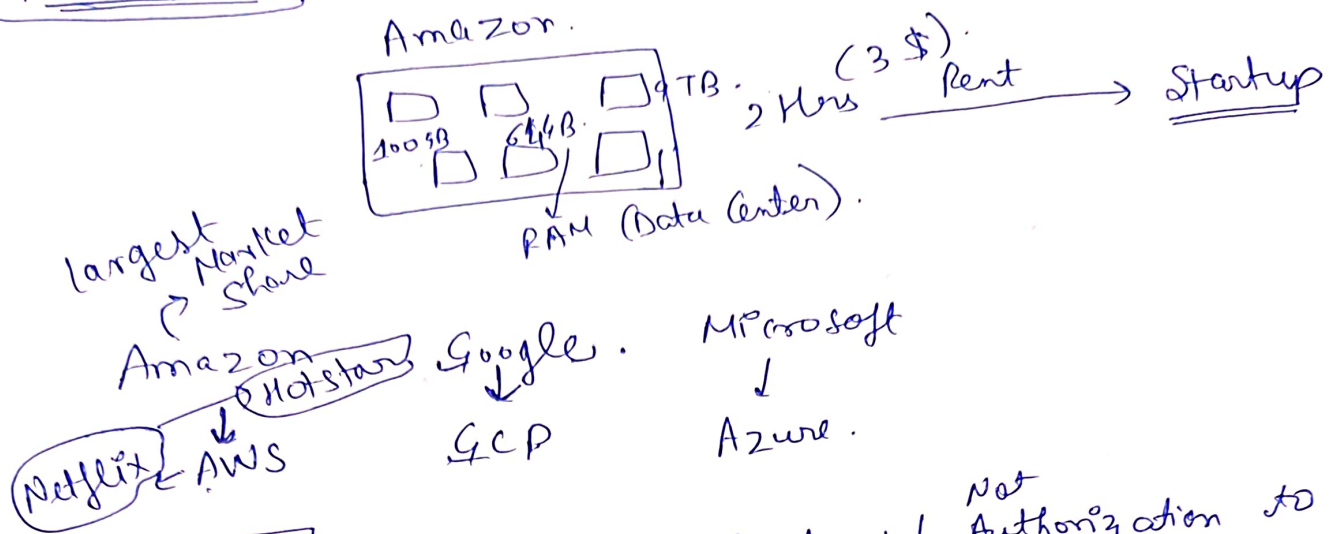 Amazon.
TB.
2 Hrs (3 $).
Rent
Startup
100 GB
64 GB.
RAM (Data Center).
largest
Market
Share
Amazon
Hotstar
Google.
Microsoft
Netflix
AWS
GCP
Azure.
Not
Authorization to